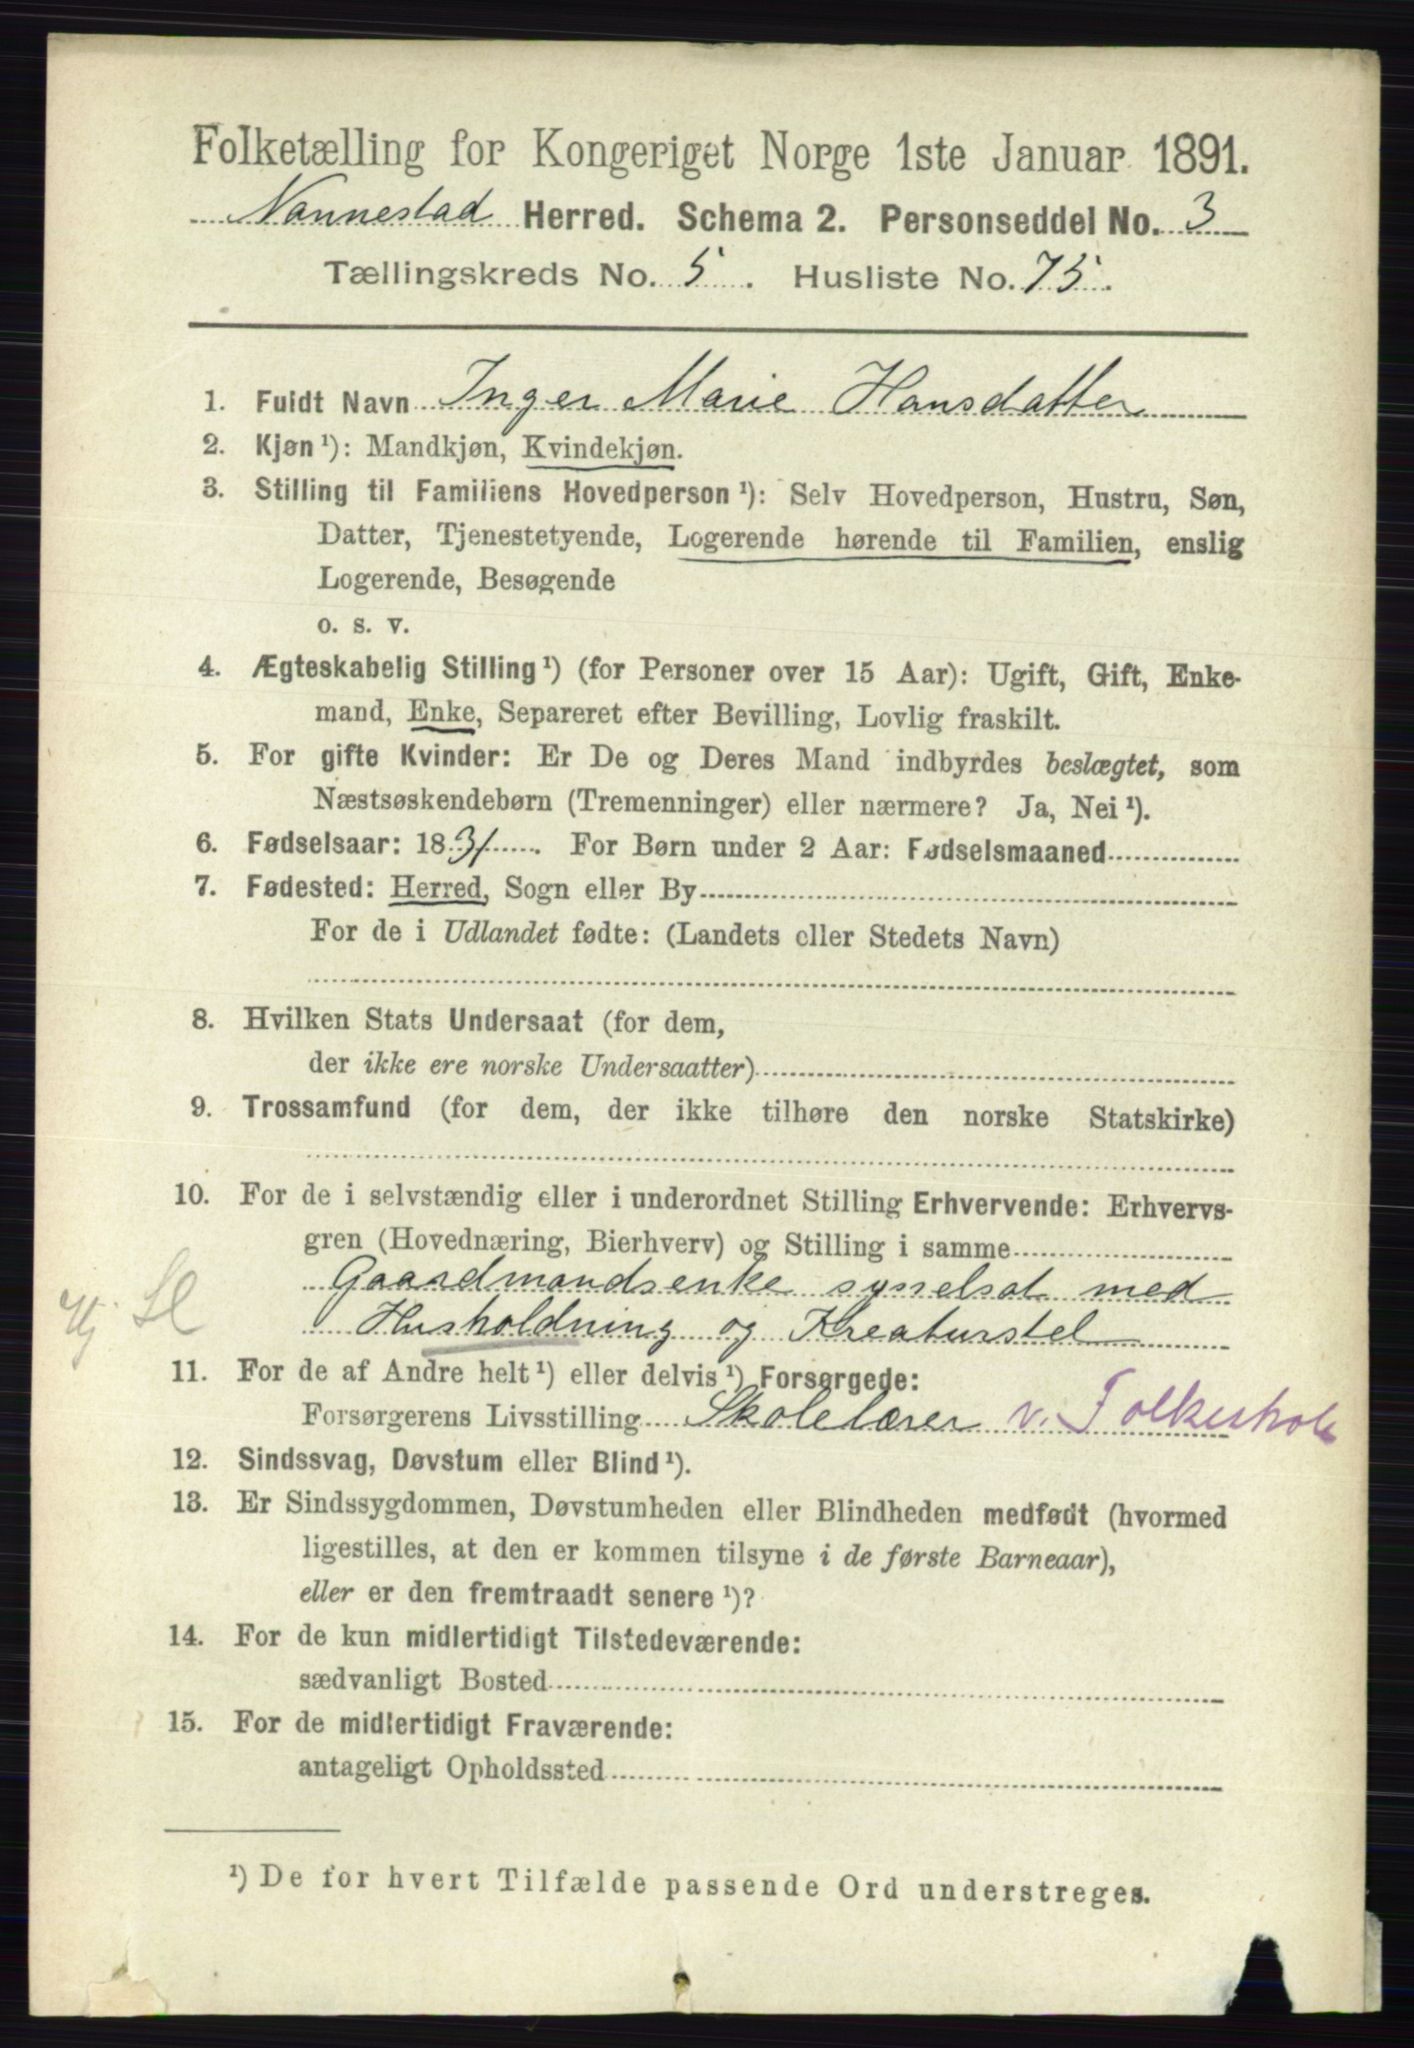 Folketælling for Kongeriget Norge 1ste Januar 1891.
Nannestad Herred. Schema 2. Personseddel No. 3
Tællingskreds No. 5. Husliste No. 75.
1. Fuldt Navn Inger Marie Hansdatter
2. Kjøn ¹): Mandkjøn, Kvindekjøn.
3. Stilling til Familiens Hovedperson ¹): Selv Hovedperson, Hustru, Søn,
Datter, Tjenestetyende, Logerende hørende til Familien, enslig
Logerende, Besøgende
o. s. v.
4. Ægteskabelig Stilling ¹) (for Personer over 15 Aar): Ugift, Gift, Enke-
mand, Enke, Separeret efter Bevilling, Lovlig fraskilt.
5. For gifte Kvinder: Er De og Deres Mand indbyrdes beslægtet, som
Næstsøskendebørn (Tremenninger) eller nærmere? Ja, Nei ¹).
6. Fødselsaar: 1831. For Børn under 2 Aar: Fødselsmaaned
7. Fødested: Herred, Sogn eller By
For de i Udlandet fødte: (Landets eller Stedets Navn)
8. Hvilken Stats Undersaat (for dem,
der ikke ere norske Undersaatter)
9. Trossamfund (for dem, der ikke tilhøre den norske Statskirke)
10. For de i selvstændig eller i underordnet Stilling Erhvervende: Erhvervs-
gren (Hovednæring, Bierhverv) og Stilling i samme
Gaardmandsenke sysselsat med
Husholdning og Kreaturstel
11. For de af Andre helt ¹) eller delvis ¹) Forsørgede:
Forsørgerens Livsstilling Skolelærer v. Folkeskole
12. Sindssvag, Døvstum eller Blind ¹).
13. Er Sindssygdommen, Døvstumheden eller Blindheden medfødt (hvormed
ligestilles, at den er kommen tilsyne i de første Barneaar),
eller er den fremtraadt senere ¹)?
14. For de kun midlertidigt Tilstedeværende:
sædvanligt Bosted
15. For de midlertidigt Fraværende:
antageligt Opholdssted
¹) De for hvert Tilfælde passende Ord understreges.